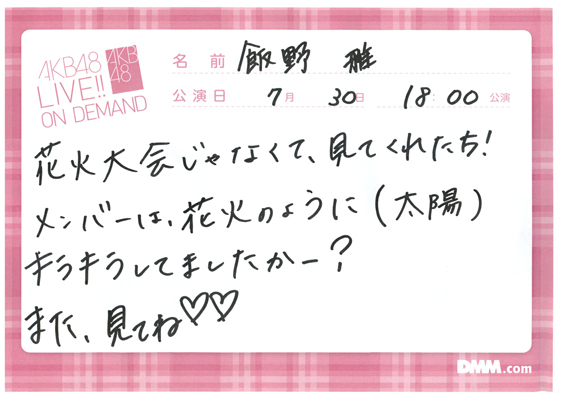 AKB48
LIVE!!
ON DEMAND
AKB
48
名前 飯野 雅
公演日 7月 30日 18:00 公演
花火大会じゃなくて、見てくれたち!
メンバーは、花火のように(太陽)
キラキラしてましたかー?
また、見てね♡♡
DMM.com